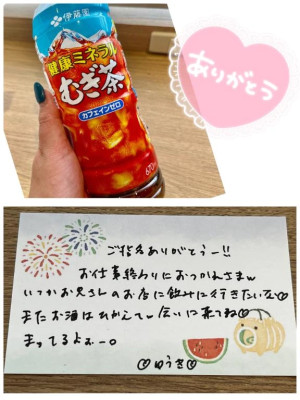 伊藤園
健康ミネラル
むぎ茶
カフェインゼロ
ありがとう
ご指名ありがとうー!!
お仕事終わりにおつかれさまw
いつかお兄さんのお店に飲みに行きたいな♡
またお酒はひかえてw 会いに来てね♡
まってるよぉー。
♡ゆうき♡